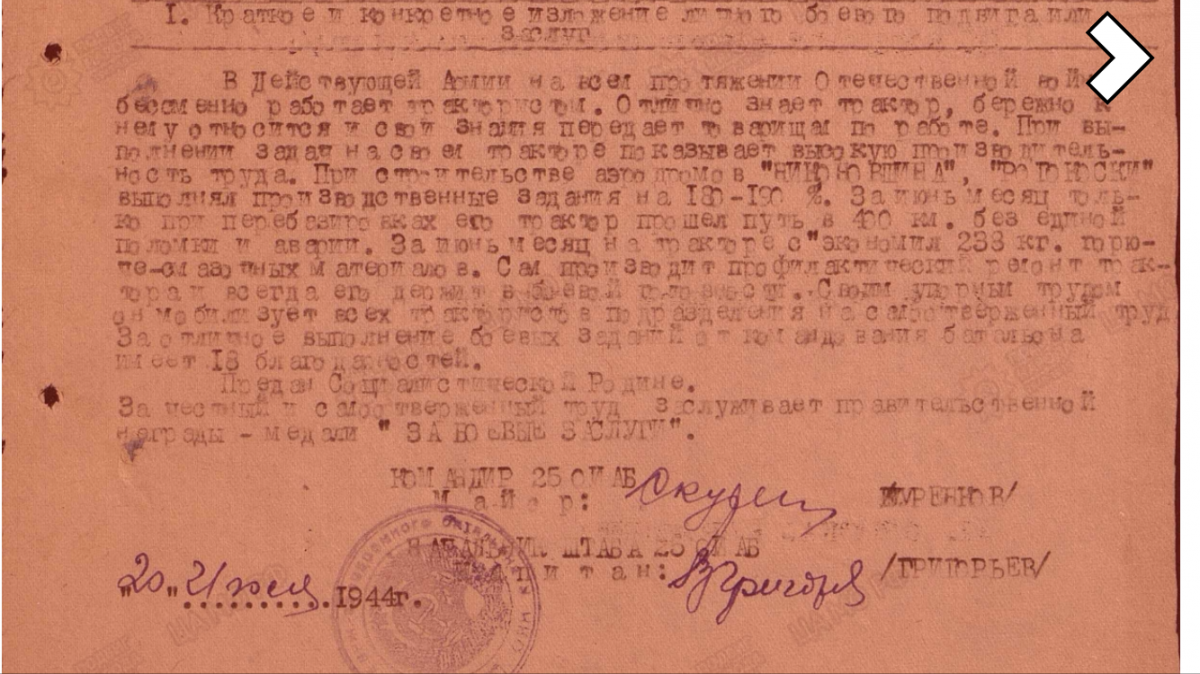 I. Краткое и конкретное изложение личного боевого подвига или
заслуг
В Действующей Армии на всем протяжении Отечественной войны
бессменно работает трактористом. Отлично знает трактор, бережно к
нему относится и свои знания передает товарищам по работе. При вы-
полнении задач на своем тракторе показывает высокую производитель-
ность труда. При строительстве аэродромов "НИКОНОВЩИНА",
выполнял производственные задания на 180-190 %. За июнь месяц толь-
ко при перебазировках его трактор прошел путь в 400 км. без единой
поломки и аварии. За июнь месяц на тракторе с"экономил 238 кг. горю-
че-смазочных материалов. Сам производит профилактический ремонт трак-
тора и всегда его держит в боевой готовности. Своим упорным трудом
он мобилизует всех трактористов подразделения на самоотверженный труд
За отличное выполнение боевых заданий от командования батальона
имеет 18 благодарностей.
Предан Социалистической Родине.
За честный и самоотверженный труд заслуживает правительственной
награды - медали " ЗА БОЕВЫЕ ЗАСЛУГИ".
КОМАНДИР 25 ОИАБ
Майор:
НАЧАЛЬНИК ШТАБА 25 ОИАБ
Капитан: /ГРИГОРЬЕВ/
"20" Июля 1944г.